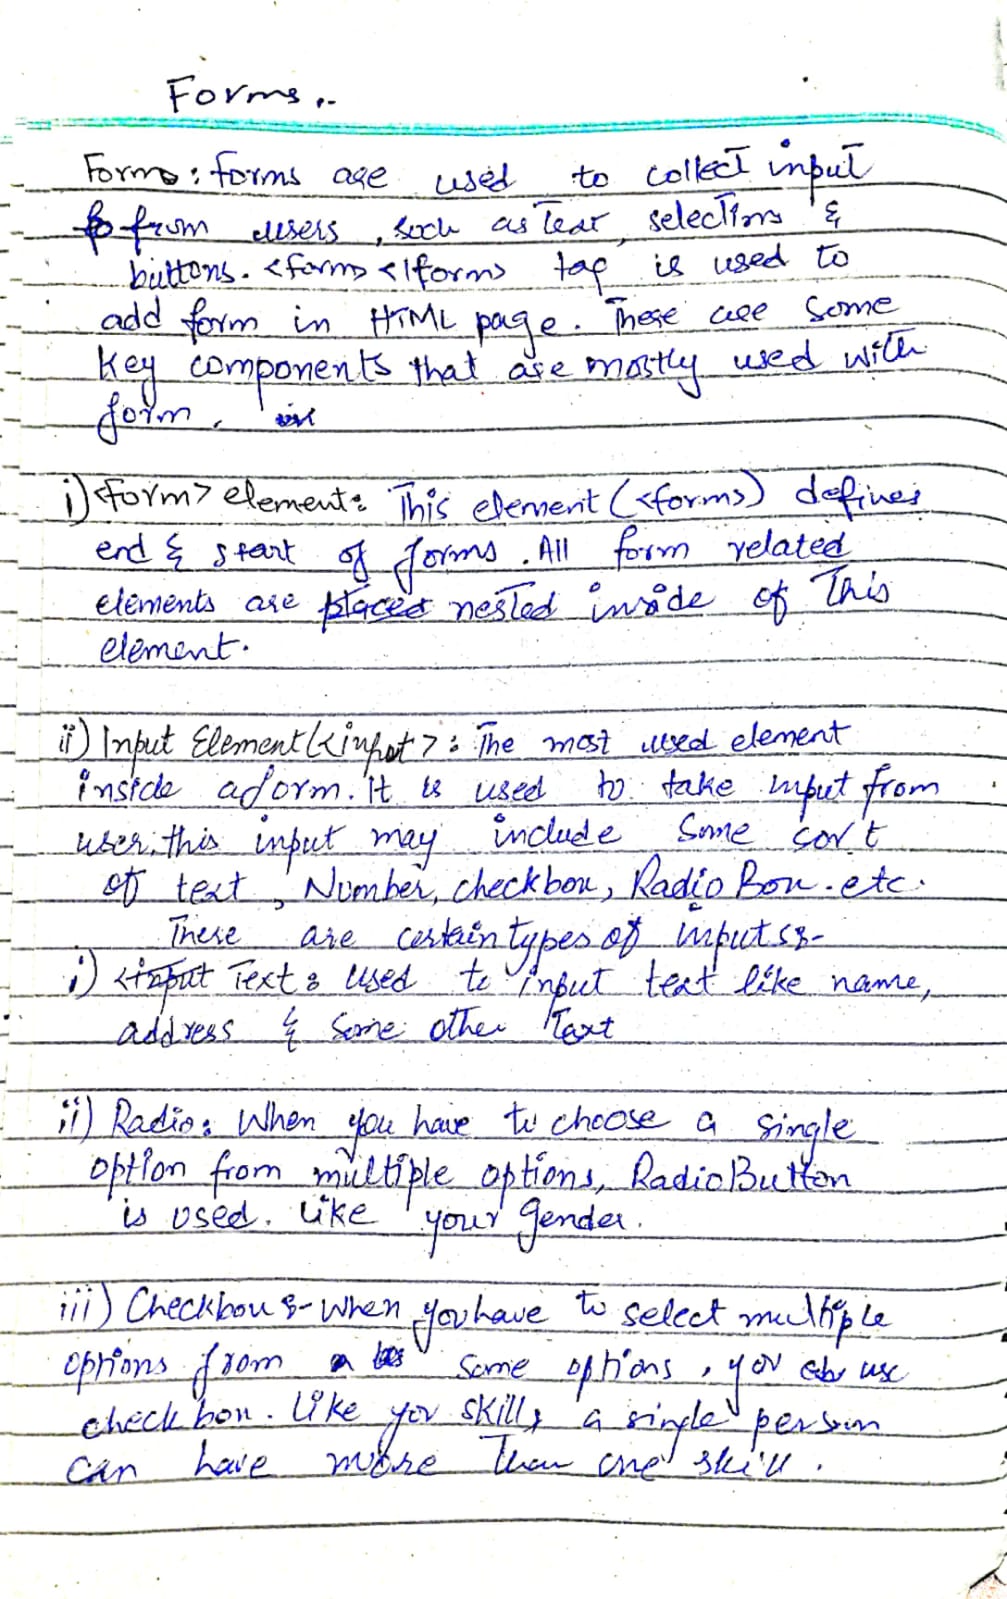 Forms :-
Forms : forms are used to collect input
from users, such as text, selections &
buttons. <form> </form> tag is used to
add form in HTML page. These are some
key components that are mostly used with
form.
i) <form> element : This element (<forms>) defines
end & start of forms. All form related
elements are placed nested inside of This
element.
ii) Input Element (<input> : The most used element
inside a form. It is used to take input from
user, this input may include some sort
of text, Number, checkbox, Radio Box. etc.
These are certain types of inputs :-
i) <input Text : Used to input text like name,
address & some other Text
ii) Radio : When you have to choose a single
option from multiple options, Radio Button
is used. Like your gender.
iii) Checkbox :- When you have to select multiple
options from a some options, you use
checkbox. Like your skills, a single person
can have more Than one skill.